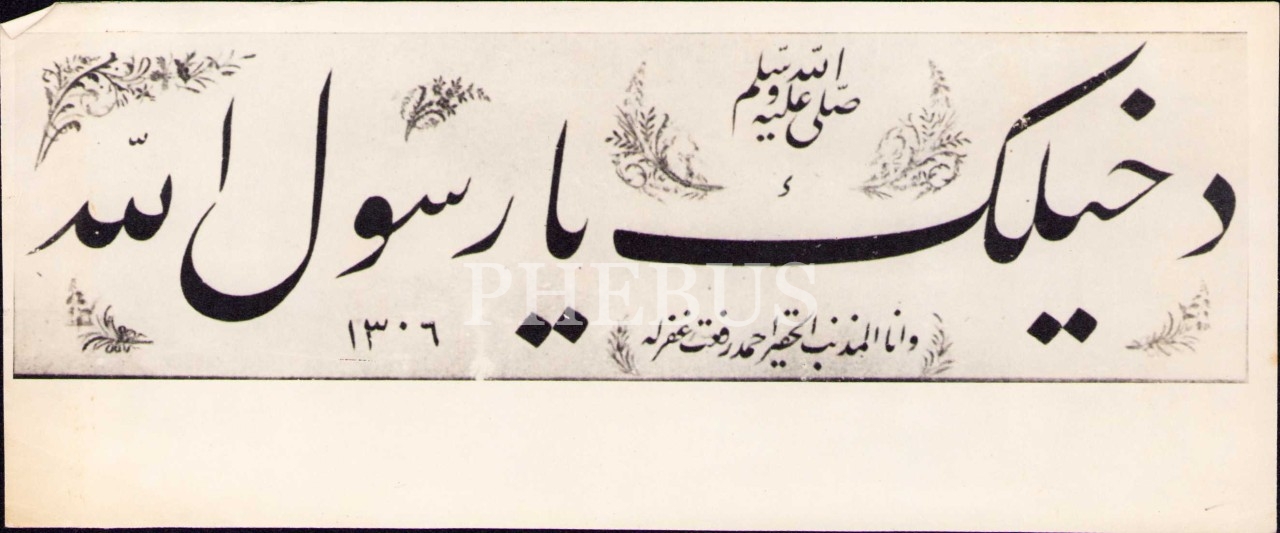 صلى الله عليه وسلم
دخيلك يا رسول الله
وانا المذنب الحقير احمد رفعت غفرله
١٣٠٦
PHEBUS